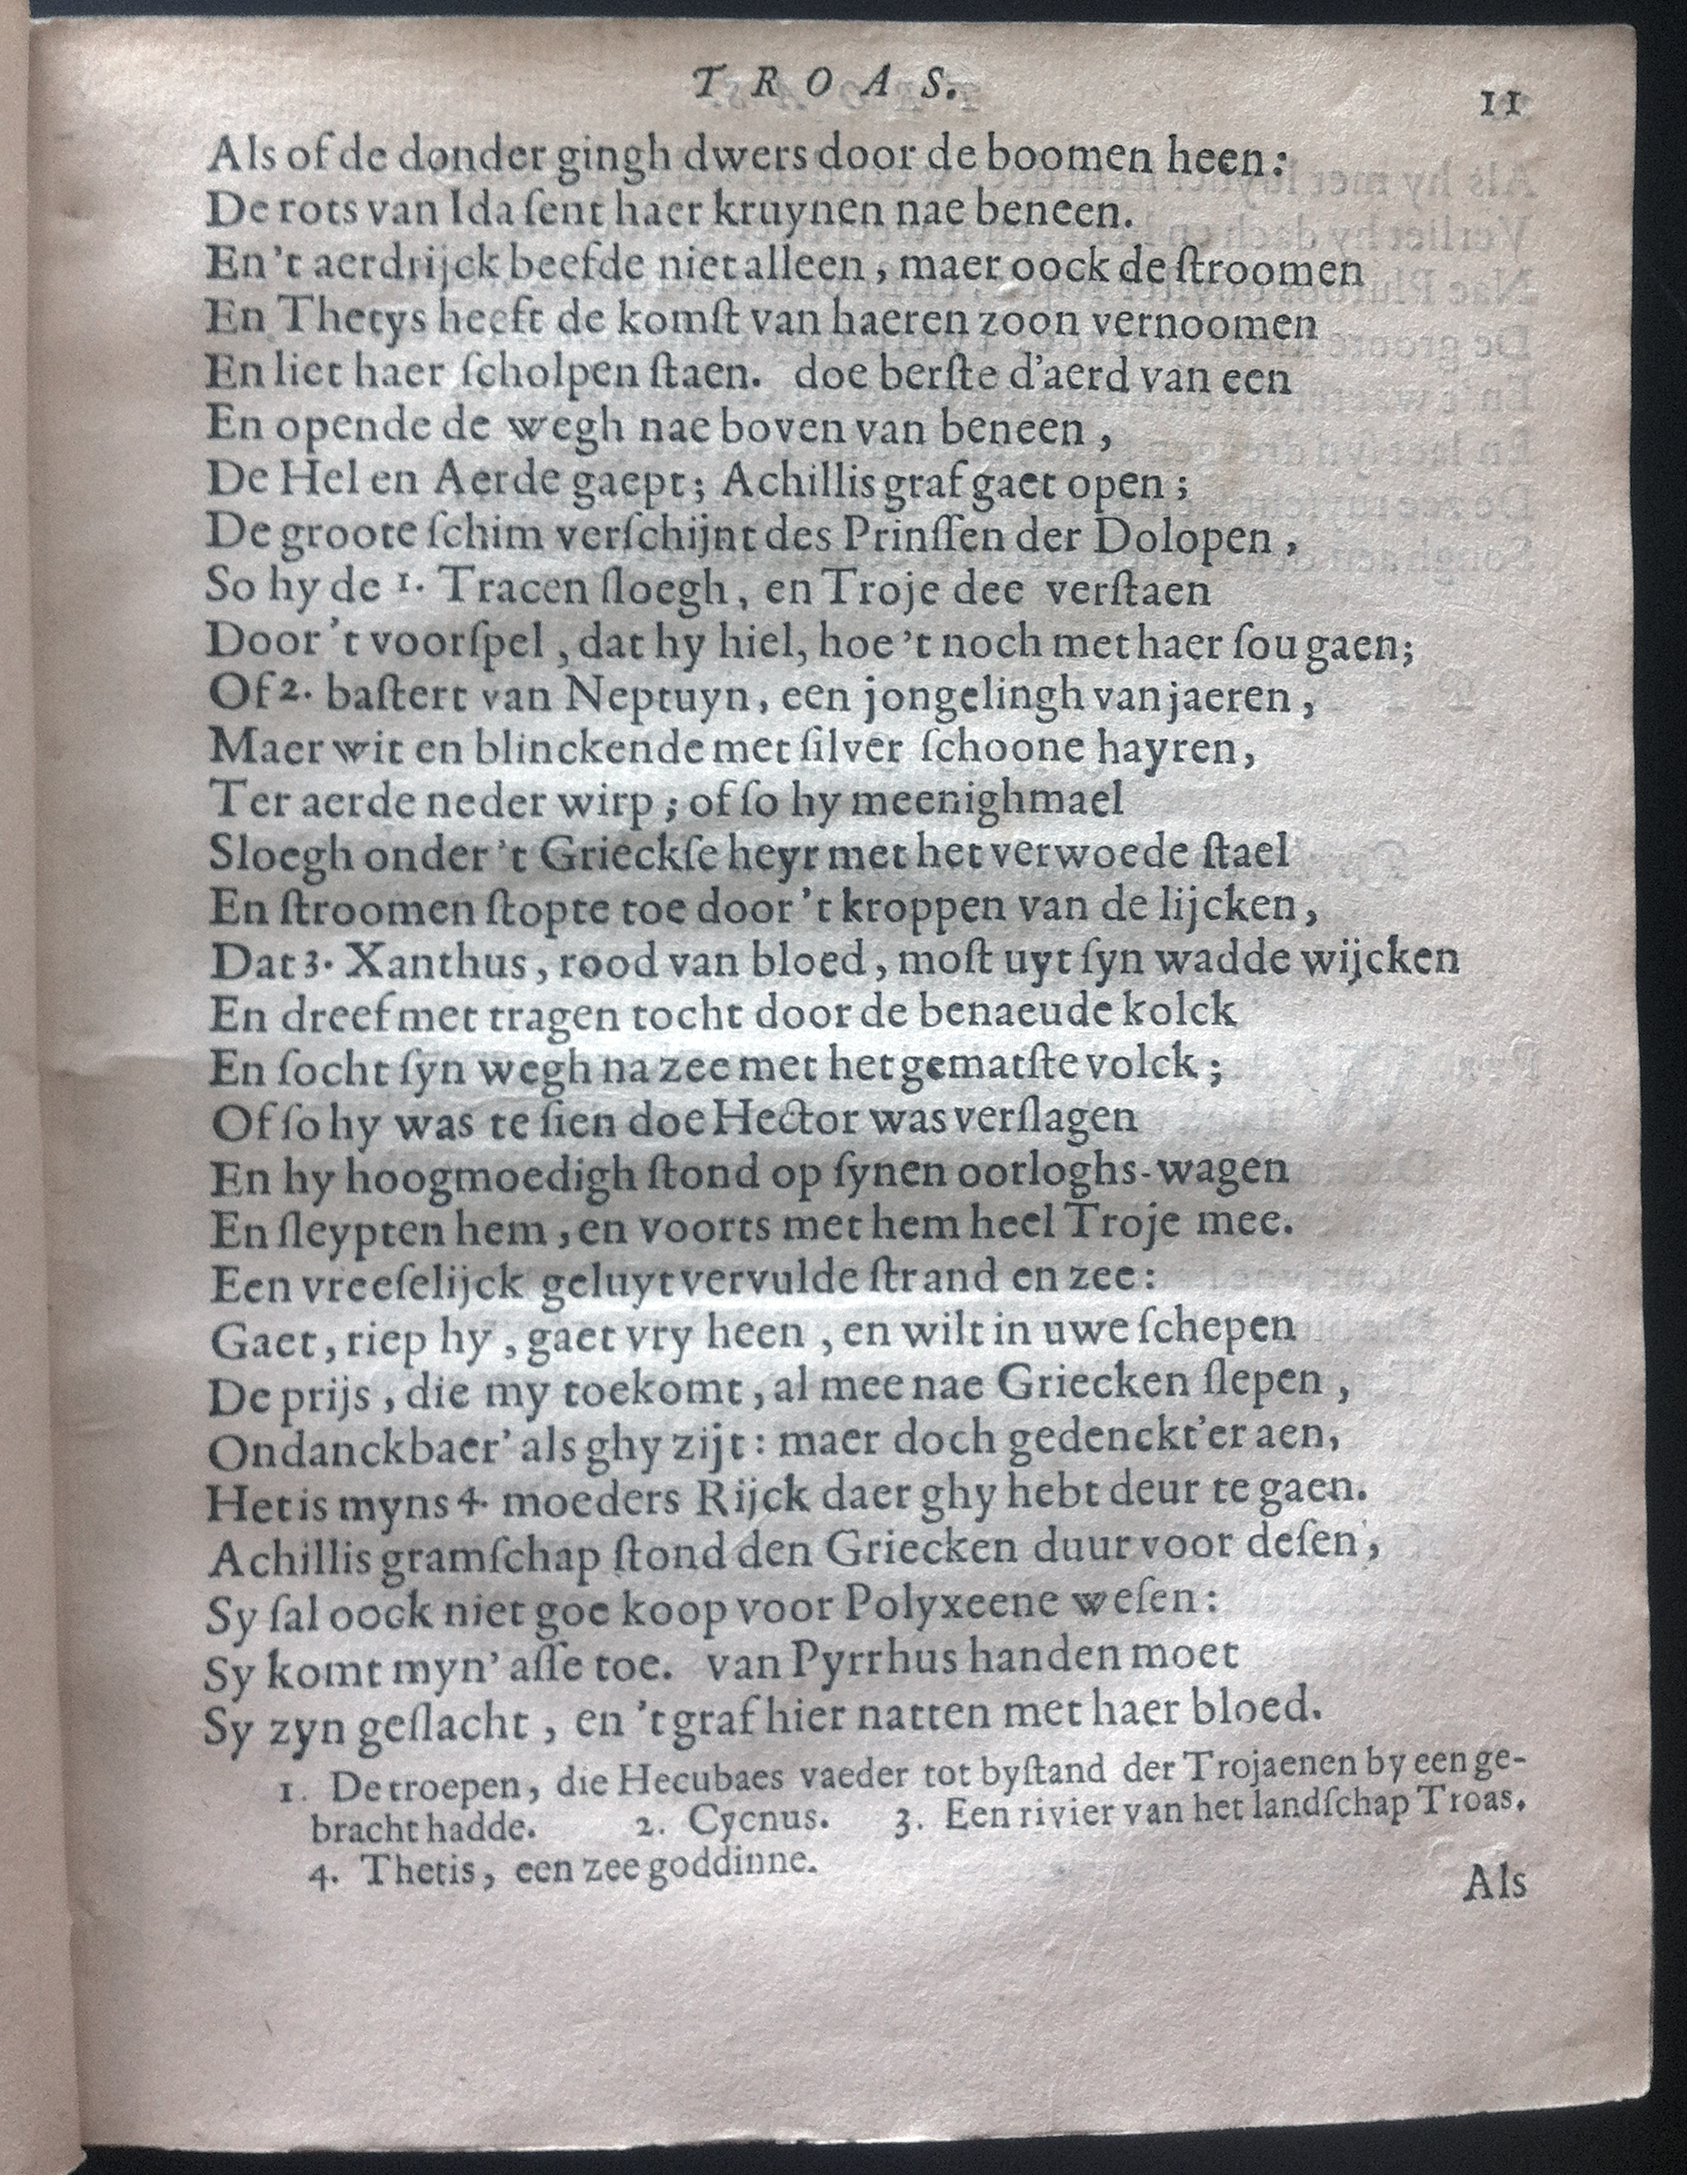 TROAS.
11
Als of de donder gingh dwers door de boomen heen:
De rots van Ida ſent haer kruynen nae beneen.
En 't aerdrijck beefde niet alleen, maer oock de ſtroomen
En Thetys heeft de komſt van haeren zoon vernoomen
En liet haer ſcholpen ſtaen. doe berſte d'aerd van een
En opende de wegh nae boven van beneen,
De Hel en Aerde gaept; Achillis graf gaet open;
De groote ſchim verſchijnt des Prinſſen der Dolopen,
So hy de 1. Tracen ſloegh, en Troje dee verſtaen
Door 't voorſpel, dat hy hiel, hoe 't noch met haer ſou gaen;
Of 2. baſtert van Neptuyn, een jongelingh van jaeren,
Maer wit en blinckende met ſilver ſchoone hayren,
Ter aerde neder wirp; of ſo hy meenighmael
Sloegh onder 't Grieckſe heyr met het verwoede ſtael
En ſtroomen ſtopte toe door 't kroppen van de lijcken,
Dat 3. Xanthus, rood van bloed, moſt uyt ſyn wadde wijcken
En dreef met tragen tocht door de benaeude kolck
En ſocht ſyn wegh na zee met het gematſte volck;
Of ſo hy was te ſien doe Hector was verſlagen
En hy hoogmoedigh ſtond op ſynen oorloghs-wagen
En ſleypten hem, en voorts met hem heel Troje mee.
Een vreeſelijck geluyt vervulde ſtrand en zee:
Gaet, riep hy, gaet vry heen, en wilt in uwe ſchepen
De prijs, die my toekomt, al mee nae Griecken ſlepen,
Ondanckbaer' als ghy zijt: maer doch gedenckt'er aen,
Het is myns 4. moeders Rijck daer ghy hebt deur te gaen.
Achillis gramſchap ſtond den Griecken duur voor deſen,
Sy ſal oock niet goe koop voor Polyxeene weſen:
Sy komt myn' aſſe toe. van Pyrrhus handen moet
Sy zyn geſlacht, en 't graf hier natten met haer bloed.
1. De troepen, die Hecubaes vaeder tot byſtand der Trojaenen by een ge-
bracht hadde. 2. Cycnus. 3. Een rivier van het landſchap Troas.
4. Thetis, een zee goddinne.
Als